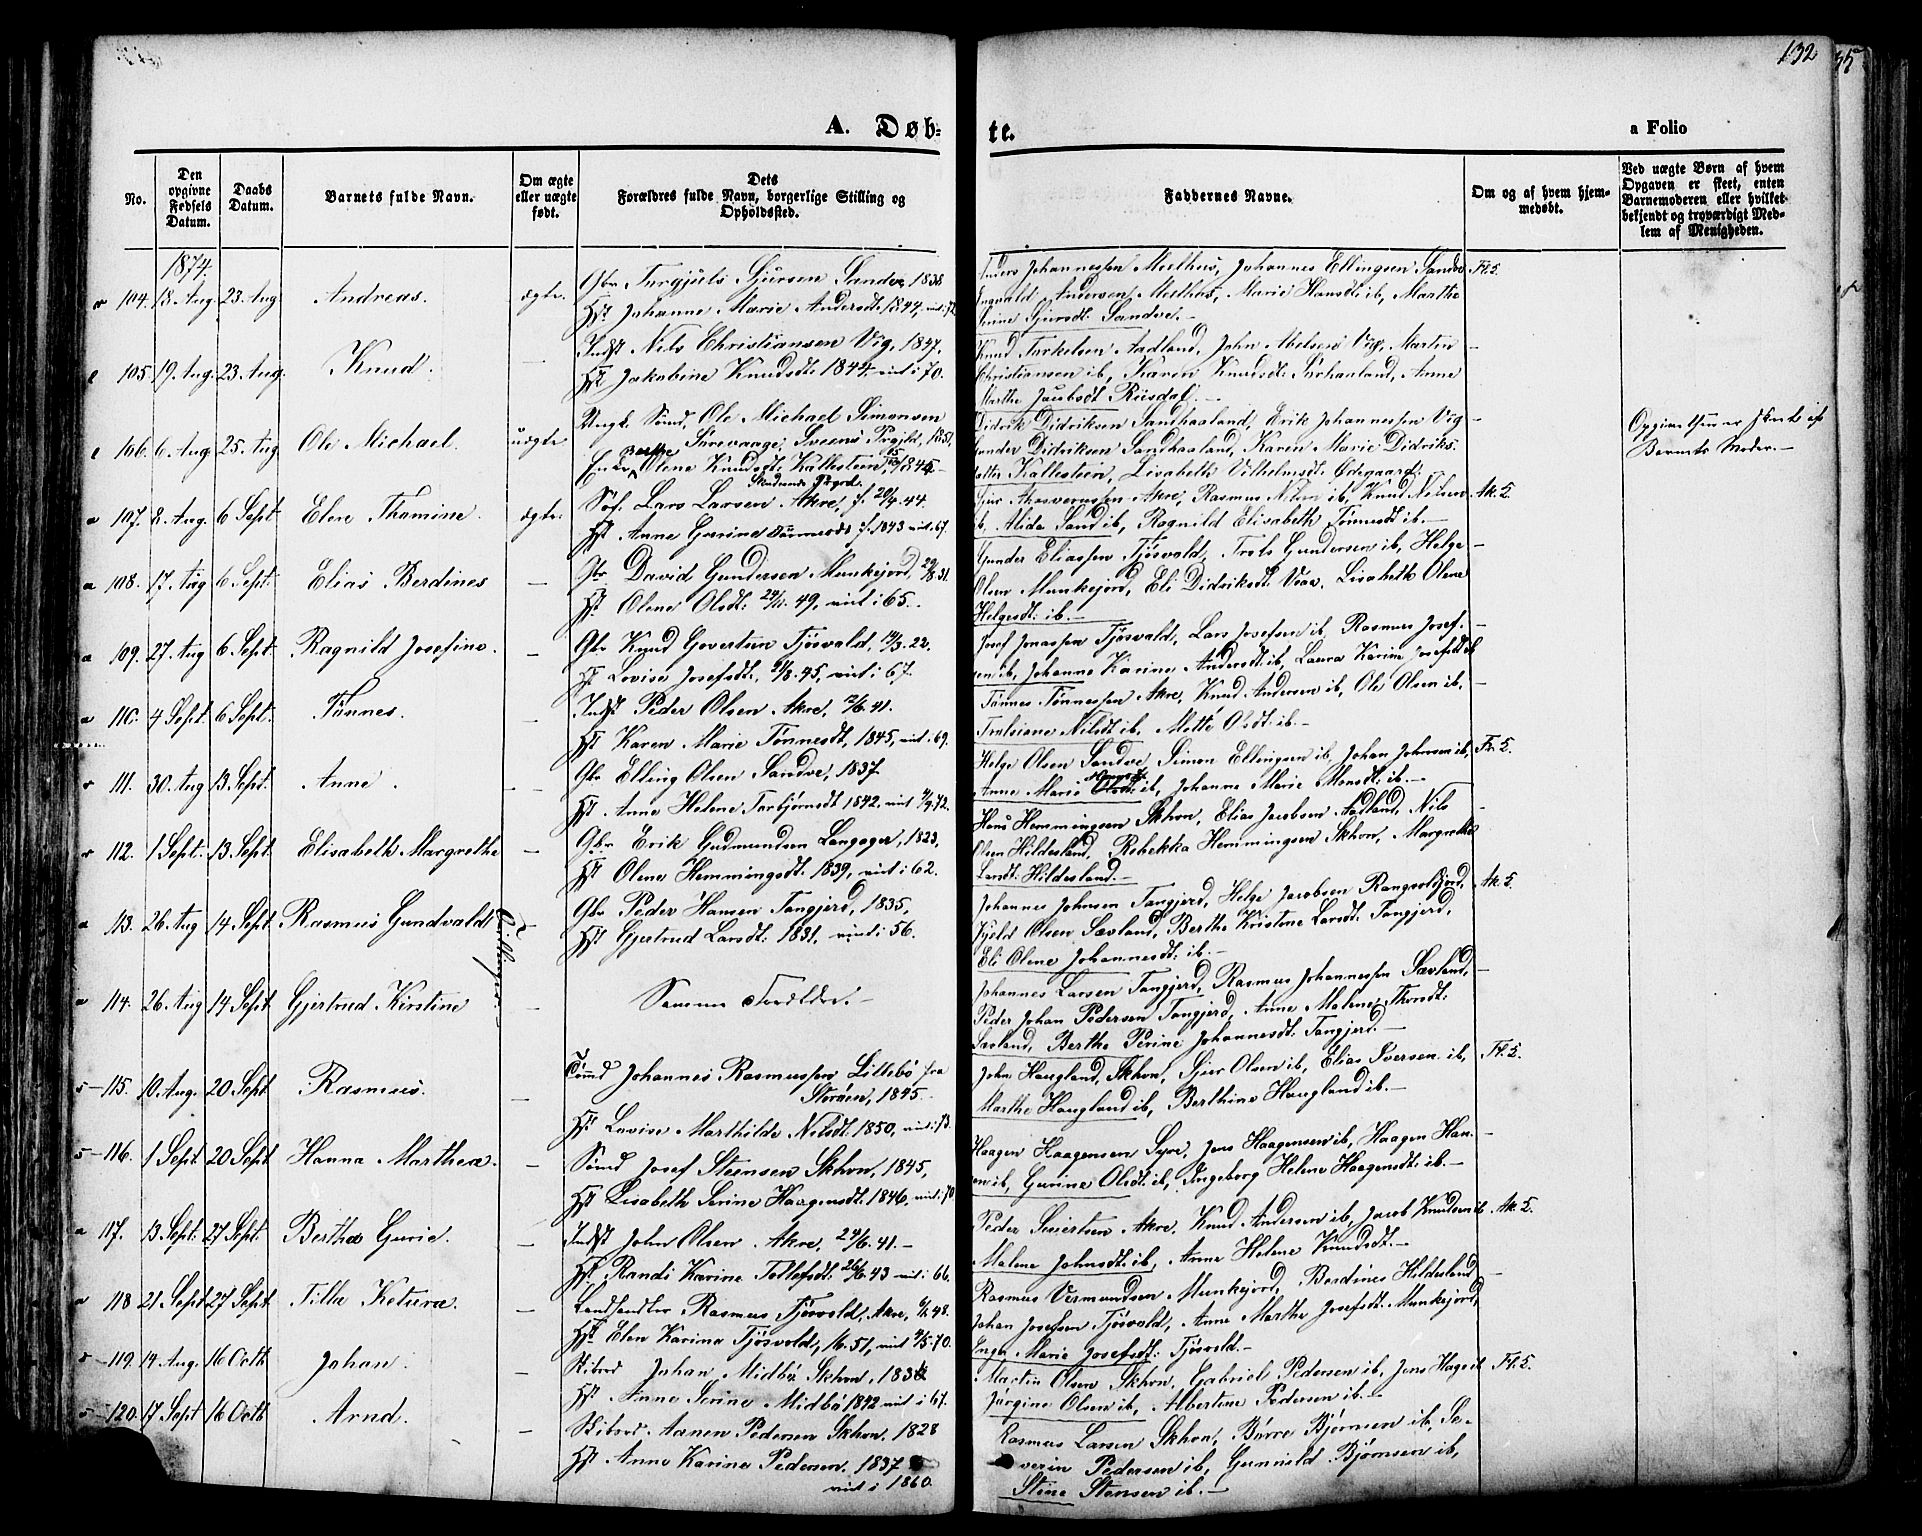 132
35
A. Døb-
te.
a Folio
No.
Den opgivne Fødsels Datum.
Daabs Datum.
Barnets fulde Navn.
Om ægte eller uægte født.
Dets Forældres fulde Navn, borgerlige Stilling og Opholdssted.
Faddernes Navne.
Om og af hvem hjemmedøbt.
Ved uægte Børn af hvem Opgaven er skeet, enten Barnemoderen eller hvilket bekjendt og troværdigt Medlem af Menigheden.
1874.
r 104. 13. Aug 23. Aug Andreas. ægte.
Gbr Torgjuls Sjursen Sandve, 1838
Hst Johanne Marie Andersdt. 1844, viet i 72
Anders Johannessen Melhus, Johannes Ellingsen Sandve Fr. 5.
Engvald Andersen Melhus, Marie Hansdt ib, Marthe
Serine Sjursdt. Sandve.-
l 105. 19. Aug. 23. Aug. Knud. —
Indst Nils Christiansen Vig, 1847.
Hst Jakobine Knudsdt. 1844. viet i 70.
Knud Torkelsen Aadland, John Abelsen Vig, Martin -
Christiansen ib, Karen Knudsdt. Sørhaaland, Anne
Marthe Jacobsdt Risdal. -
l 106. 6. Aug 25. Aug Ole Michael. uægte.
Ungk. Sømd. Ole Michael Simonsen
Sørevaage, Sveens Prgjld, 1851,
Enke Berthe Olene Knudsdt. Kallestein, 1845-
Skudesnæs Prgjd.
Didrik Didriksen Sandhaaland, Erik Johannessen Vig -
Gunder Didriksen Sandhaaland, Karen Marie Didriks-
datter Kallestein, Lisabeth Vilhelmsdt. Ødegaard.
Opgivelsen er skeet af
Barnets Moder.-
a 107. 8. Aug. 6 Sept. Elene Thomine. ægte.
Søf. Lars Larsen Akre, f. 20/9. 44.
Hst Anne Gurine Tønnesdt f. 1843 viet i 67.
Akre, Rasmus Nilsen ib, Knud Nilsen Ak. 5.
ib, Alida Sand ib, Ragnild Elisabeth Tønnesdt ib.-
a 108. 17. Aug 6 Sept. Elias Berdines —
Gbr David Gundersen Munkejord, 29/8. 31.
Hst. Olene Olsdt. 29/11. 49, viet i 65.
Gunder Eliassen Tjøsvold, Trols Gundersen ib, Helge -
Olsen Munkejord, Eli Didriksdt. Vaa, Lisabeth Olene
Helgesdt. ib.-
a 109. 27. Aug 6 Sept. Ragnild Josefine. —
Gbr Knud Govertsen Tjøsvold, 14/3. 22.
Hst Lovise Josefsdt. 21/8. 45, viet i 67.
Josef Jonassen Tjøsvold, Lars Josefsen ib, Rasmus Josef- -
sen ib, Johanne Karine Andersdt ib, Laura Karine Josefsdt ib
a 110. 4 Sept. 6 Sept. Tønnes. —
Indst Peder Olsen Akre, 2/6. 41.
Hst Karen Marie Tønnesdt, 1845, viet i 69.
Tønnes Tønnessen Akre, Knud Andersen ib, Ole Olsen ib, -
Nilsdt ib, Mette Olsdt. ib.-
r 111. 30. Aug 13. Sept. Anne. —
Gbr Elling Olsen Sandve, 1837
Hst Anne Helene Torbjørnsdt 1842. viet 4/9. 72.
Helge Olsen Sandve, Simon Ellingsen ib, Johan Johnsen ib, Fr. 5.
Anne Marie ib, Johanne Marie Monsdt. ib.-
r 112. 1 Sept. 13 Sept. Elisabeth Margrethe —
Gbr Erik Gudmundsen Langager, 1823,
Hst Olene Hemmingsdt. 1839, viet i 62.
Hans Hemmingsen Skhvn, Elias Jacobsen Aadland, Nils -
Olsen Hildesland, Rebekka Hemmingsen Skhvn, Margrethe
Larsdt. Hildesland.-
a 113. 26. Aug 14 Sept Rasmus Gundvald Tvillinger. —
Gbr Peder Hansen Tangjerd, 1835,
Hst Gjertrud Larsdt. 1831, viet i 56.
Johannes Johnsen Tangjerd, Helge Jacobsen, Ak. 5.
Kjeld Olsen Sævland, Berthe Kristine Larsdt. Tangjerd,
Eli Olene Johannesdt. ib.-
a 114. 26. Aug 14 Sept Gjertrud Kirstine —
Samme Forældre.-
Johannes Larsen Tangjerd, Rasmus Johannessen Sævland, -
Peder Johan Pedersen Tangjerd, Anne Malene Thorsdt.
Sævland, Berthe Serine Johannesdt. Tangjerd.-
s 115. 10 Aug. 20 Sept Rasmus. —
Sømd Johannes Rasmussen Lillebø fra
Storøen, 1845.
Hst Lovise Marthilde Nilsdt. 1850, viet i 73.
John Haugland, Skhvn, Sjur Olsen ib, Elias Iversen ib, Fl. 5.
Marthe Haugland ib, Berthine Haugland ib.-
s 116. 1 Sept 20 Sept Hanna Marthea. —
Sømd Josef Steensen Skhvn, 1845,
Hst Lisabeth Serine Haagensdt. 1846, viet i 70
Haagen Haagensen Syre, Jens Haagensen ib, Haagen Han- -
sen ib, Gurine Olsdt. ib, Ingeborg Helene Haagensdt. ib.-
a 117. 13 Sept. 27 Sept. Bertha Gurie. —
Indst John Olsen Akre, 24/6. 41.-
Hst Randi Karine Tollefsdt. 26/6. 43 viet i 66.
Peder Sivertsen Akre, Knud Andersen ib, Jacob Knudsen ib Ak. 5.
Malene Johnsdt. ib, Anne Helene Knudsdt.-
a 118 21 Sept 27 Sept. Tilla Ketura. —
Landhandler Rasmus Tjøsvold, Akre, 48.
Hst. Elen Karine Tjøsvold, 51, viet 4/5. 70.
Rasmus Vermundsen Munkejord, Berdines Hildesland -
Johan Josefsen Tjøsvold, Anne Marthe Josefsdt. Munkejord,
Inga Marie Josefsdt. Tjøsvold.-
s 119. 14 Aug. 16 Octb Johan. —
Skibsed Johan Midbø Skhvn, 1836
Hst. Anne Serine Midbø 1842 viet i 67.
Martin Olsen Skhvn, Gabriel Pedersen ib, Jens Hage ib Fl. 5.
Jørgine Olsen ib, Albertine Pedersen ib.-
s 120. 17 Sept 16 Octb Arnd. —
Skibsed Aanen Pedersen Skhvn. 1828
Hst Anne Karine Pedersen. 1837
viet i 1860.
Rasmus Larsen Skhvn, Børre Bjørnsen ib, Se-
verin Pedersen ib, Gunnild Bjørnsen ib,
Stine Stensen ib.-